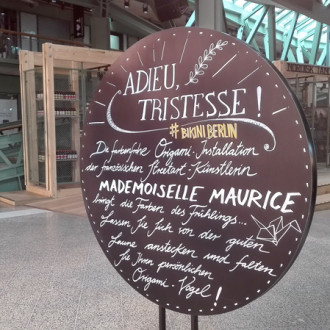 ADIEU,
TRISTESSE!
#BIKINI BERLIN
Die farbenfrohe Origami-Installation
der französischen Streetart-Künstlerin
MADEMOISELLE MAURICE
bringt die Farben des Frühlings...
Lassen Sie sich von der guten
Laune anstecken und falten
Sie Ihren persönlichen
Origami-Vogel!